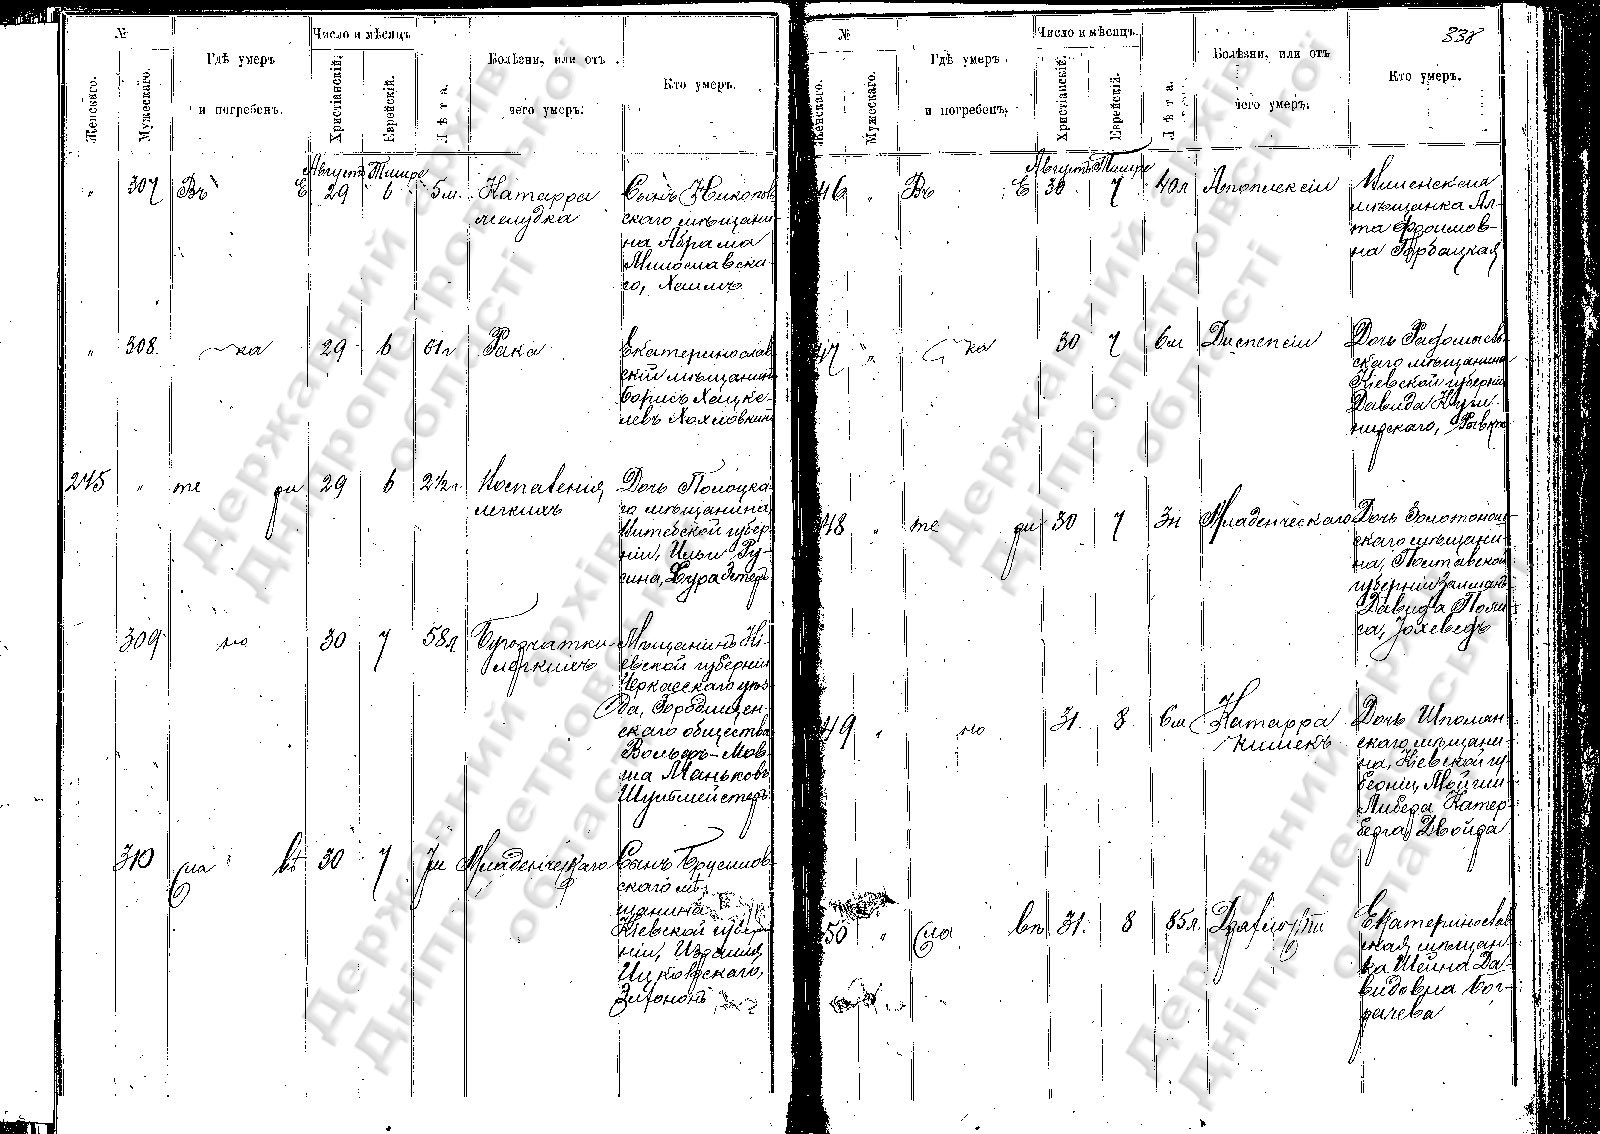 №
Женскаго.
Мужескаго.
Гдѣ умеръ
и погребенъ.
Число и мѣсяцъ
Христіанскій.
Еврейскій.
Лѣта.
Болѣзни, или отъ
чего умеръ:
Кто умеръ.
Августъ Тишре
" 307 Въ Е 29 6 5м. Катарра
желудка
Сынъ Никополь
скаго мѣщани-
на Абрама
Милославска-
го, Хаимъ
" 308. ка 29 6 61г Рака
Екатеринослав
скій мѣщанинъ
Борисъ Хацке-
левъ Хохловкинъ
245 " те ри 29 6 2½г Воспаленія
легкихъ
Дочь Полоцка-
го мѣщанина
Витебской губер
ніи, Ильи Ру-
бина, Сура Эстеръ
309 но 30 7 58л Бугорчатки
легкихъ
Мѣщанинъ Кі-
евской губерніи
Черкасскаго уѣз-
да, Городищен-
скаго общества
Вольфъ-Мов-
ша Маньковъ
Шульмейстеръ
310 сла вѣ 30 7 7м Младенческаго
Сынъ Брусилов
скаго мѣ-
щанина
Кіевской губер
ніи,
№
Женскаго.
Мужескаго.
Гдѣ умеръ
и погребенъ.
Число и мѣсяцъ
Христіанскій.
Еврейскій.
Лѣта.
Болѣзни, или отъ
чего умеръ:
Кто умеръ.
338
Августъ Тишре
46 " Въ Е 30 7 40л Апоплексіи
мѣщанка Ал-
та Фроимов-
на Горбацкая
47 " ка 30 7 6м Диспепсіи
Дочь Радомысль
скаго мѣщанина
Кіевской губерніи
Давида
Рывка
48 " те ри 30 7 3н Младенческаго
Дочь Золотонош
скаго мѣщани-
на, Полтавской
губерніи Залмана
Давида
Іохеведъ
49 " но 31. 8 6м Катарра
кишекъ
Дочь Шполян-
скаго мѣщани-
на, Кіевской гу
берніи, Мойши
Либера Катер-
берга, Двойра
50 " сла вѣ 31. 8 85л. Дряхлости
Екатеринослав
ская мѣщан
ка Шейна Да-
видовна Бог-
рачева
Державний архів
Дніпропетровської
області